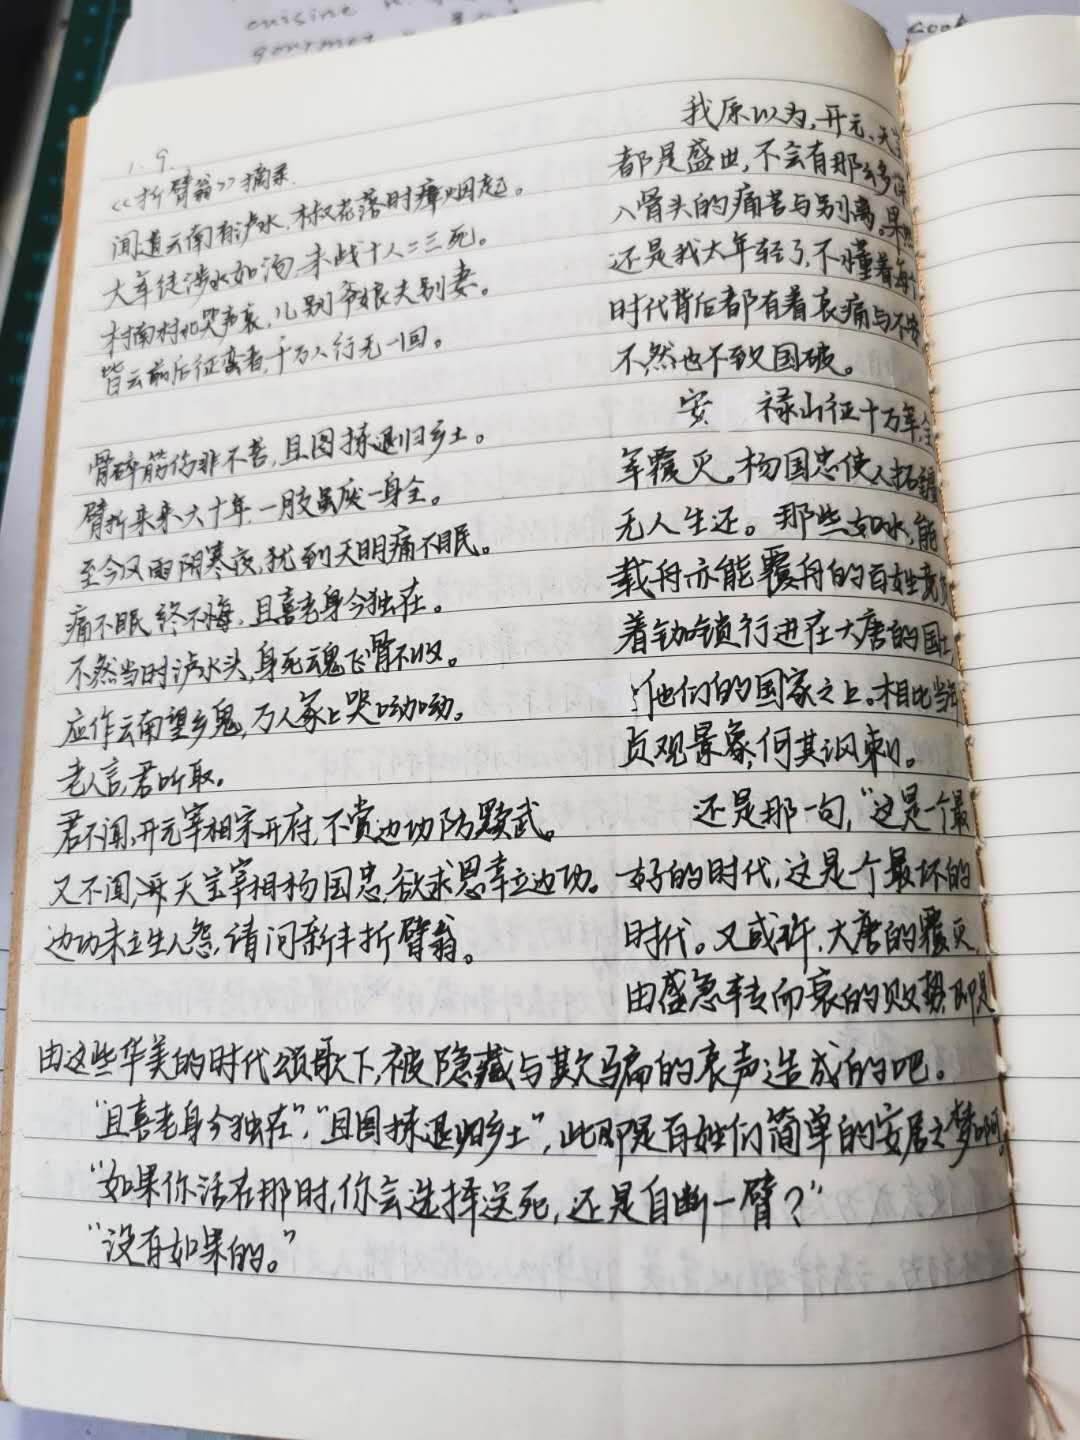 cuisine n.
gourmet
1.9.
《折臂翁》摘录.
闻道云南有泸水,椒花落时瘴烟起。
大军徒涉水如汤,未战十人二三死。
村南村北哭声哀,儿别爷娘夫别妻。
皆云前后征蛮者,千万人行无一回。
骨碎筋伤非不苦,且图拣退归乡土。
臂折来来六十年,一肢虽废一身全。
至今风雨阴寒夜,犹到天明痛不眠。
痛不眠,终不悔,且喜老身今独在。
不然当时泸水头,身死魂飞骨不收。
应作云南望乡鬼,万人冢上哭呦呦。
老人言,君听取。
君不闻,开元宰相宋开府,不赏边功防黩武。
又不闻,天宝宰相杨国忠,欲求恩幸立边功。
边功未立生人怨,请问新丰折臂翁。
我原以为,开元、天
都是盛世,不会有那么多
入骨头的痛苦与别离。果
还是我太年轻了,不懂着每个
时代背后都有着哀痛与不
不然也不致国破。
安 禄山征十万军,全
军覆灭。杨国忠使人拓疆
无人生还。那些如水,能
载舟亦能覆舟的百姓竟
着铀锁行进在大唐的国土,
他们的国家之上。相比当年
贞观景象,何其讽刺。
还是那一句,“这是一个最
好的时代,这是个最坏的
时代。又或许,大唐的覆灭,
由盛急转而衰的败势,即是
由这些华美的时代颂歌下,被隐藏与欺骗的哀声造成的吧。
“且喜老身今独在”,“且图拣退归乡土”,此即是百姓们简单的安居之梦啊。
“如果你活在那时,你会选择送死,还是自断一臂?”
“没有如果的。”